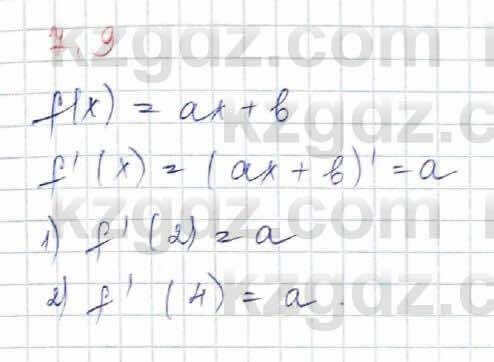 7.9
f(x) = ax + b
f'(x) = (ax + b)' = a
1) f'(2) = a
2) f'(4) = a.
kzgdz.com
kzgdz.com
kzgdz.com
kzgdz.com